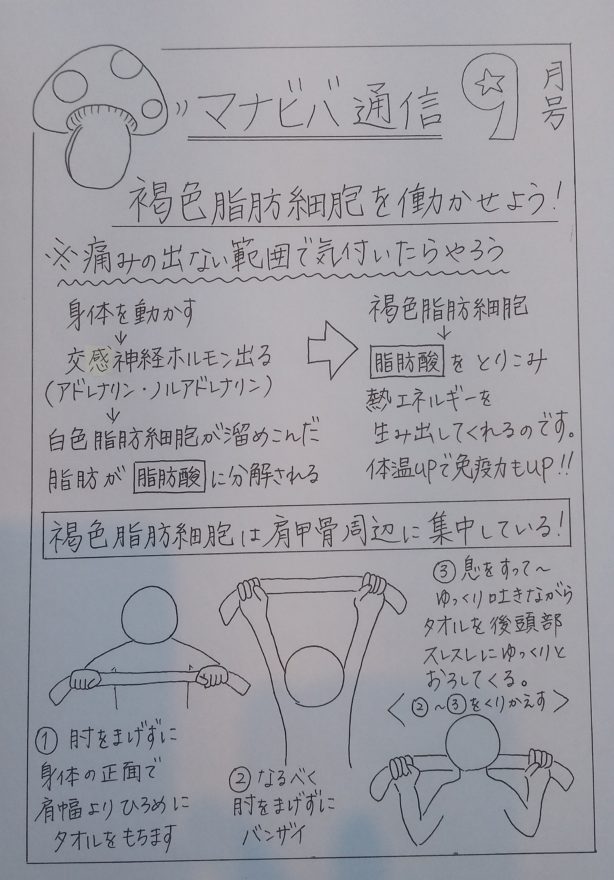 マナビバ通信 9月号
褐色脂肪細胞を働かせよう!
※痛みの出ない範囲で気付いたらやろう
身体を動かす
↓
交感神経ホルモン出る
(アドレナリン・ノルアドレナリン)
↓
白色脂肪細胞が溜めこんだ
脂肪が 脂肪酸 に分解される
褐色脂肪細胞
↓
脂肪酸 をとりこみ
熱エネルギーを
生み出してくれるのです。
体温UPで免疫力もUP!!
褐色脂肪細胞は肩甲骨周辺に集中している!
① 肘をまげずに
身体の正面で
肩幅よりひろめに
タオルをもちます
② なるべく
肘をまげずに
バンザイ
③ 息をすって〜
ゆっくり吐きながら
タオルを後頭部
スレスレにゆっくりと
おろしてくる。
<②〜③をくりかえす>